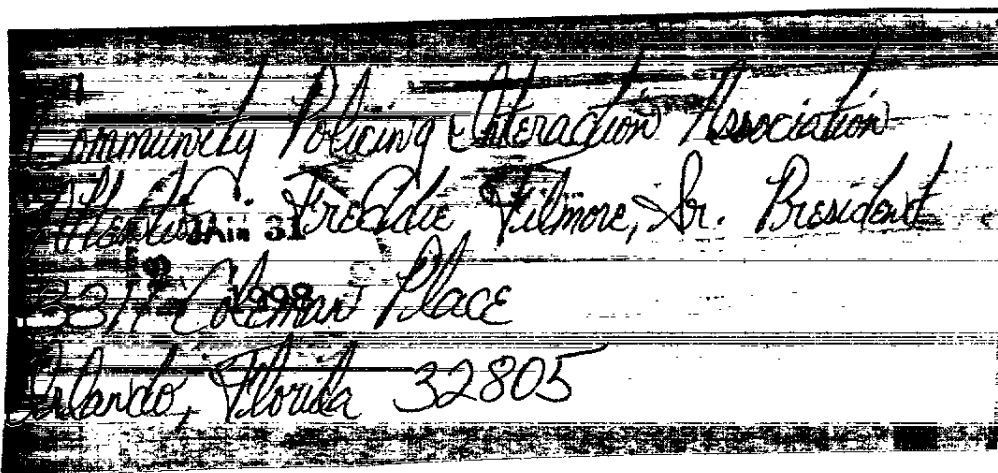 Community Policing Interaction Association
Attention: Freddie Filmore, Sr. President
JAN 31
3317 Coleman Place
1998
Orlando, Florida 32805